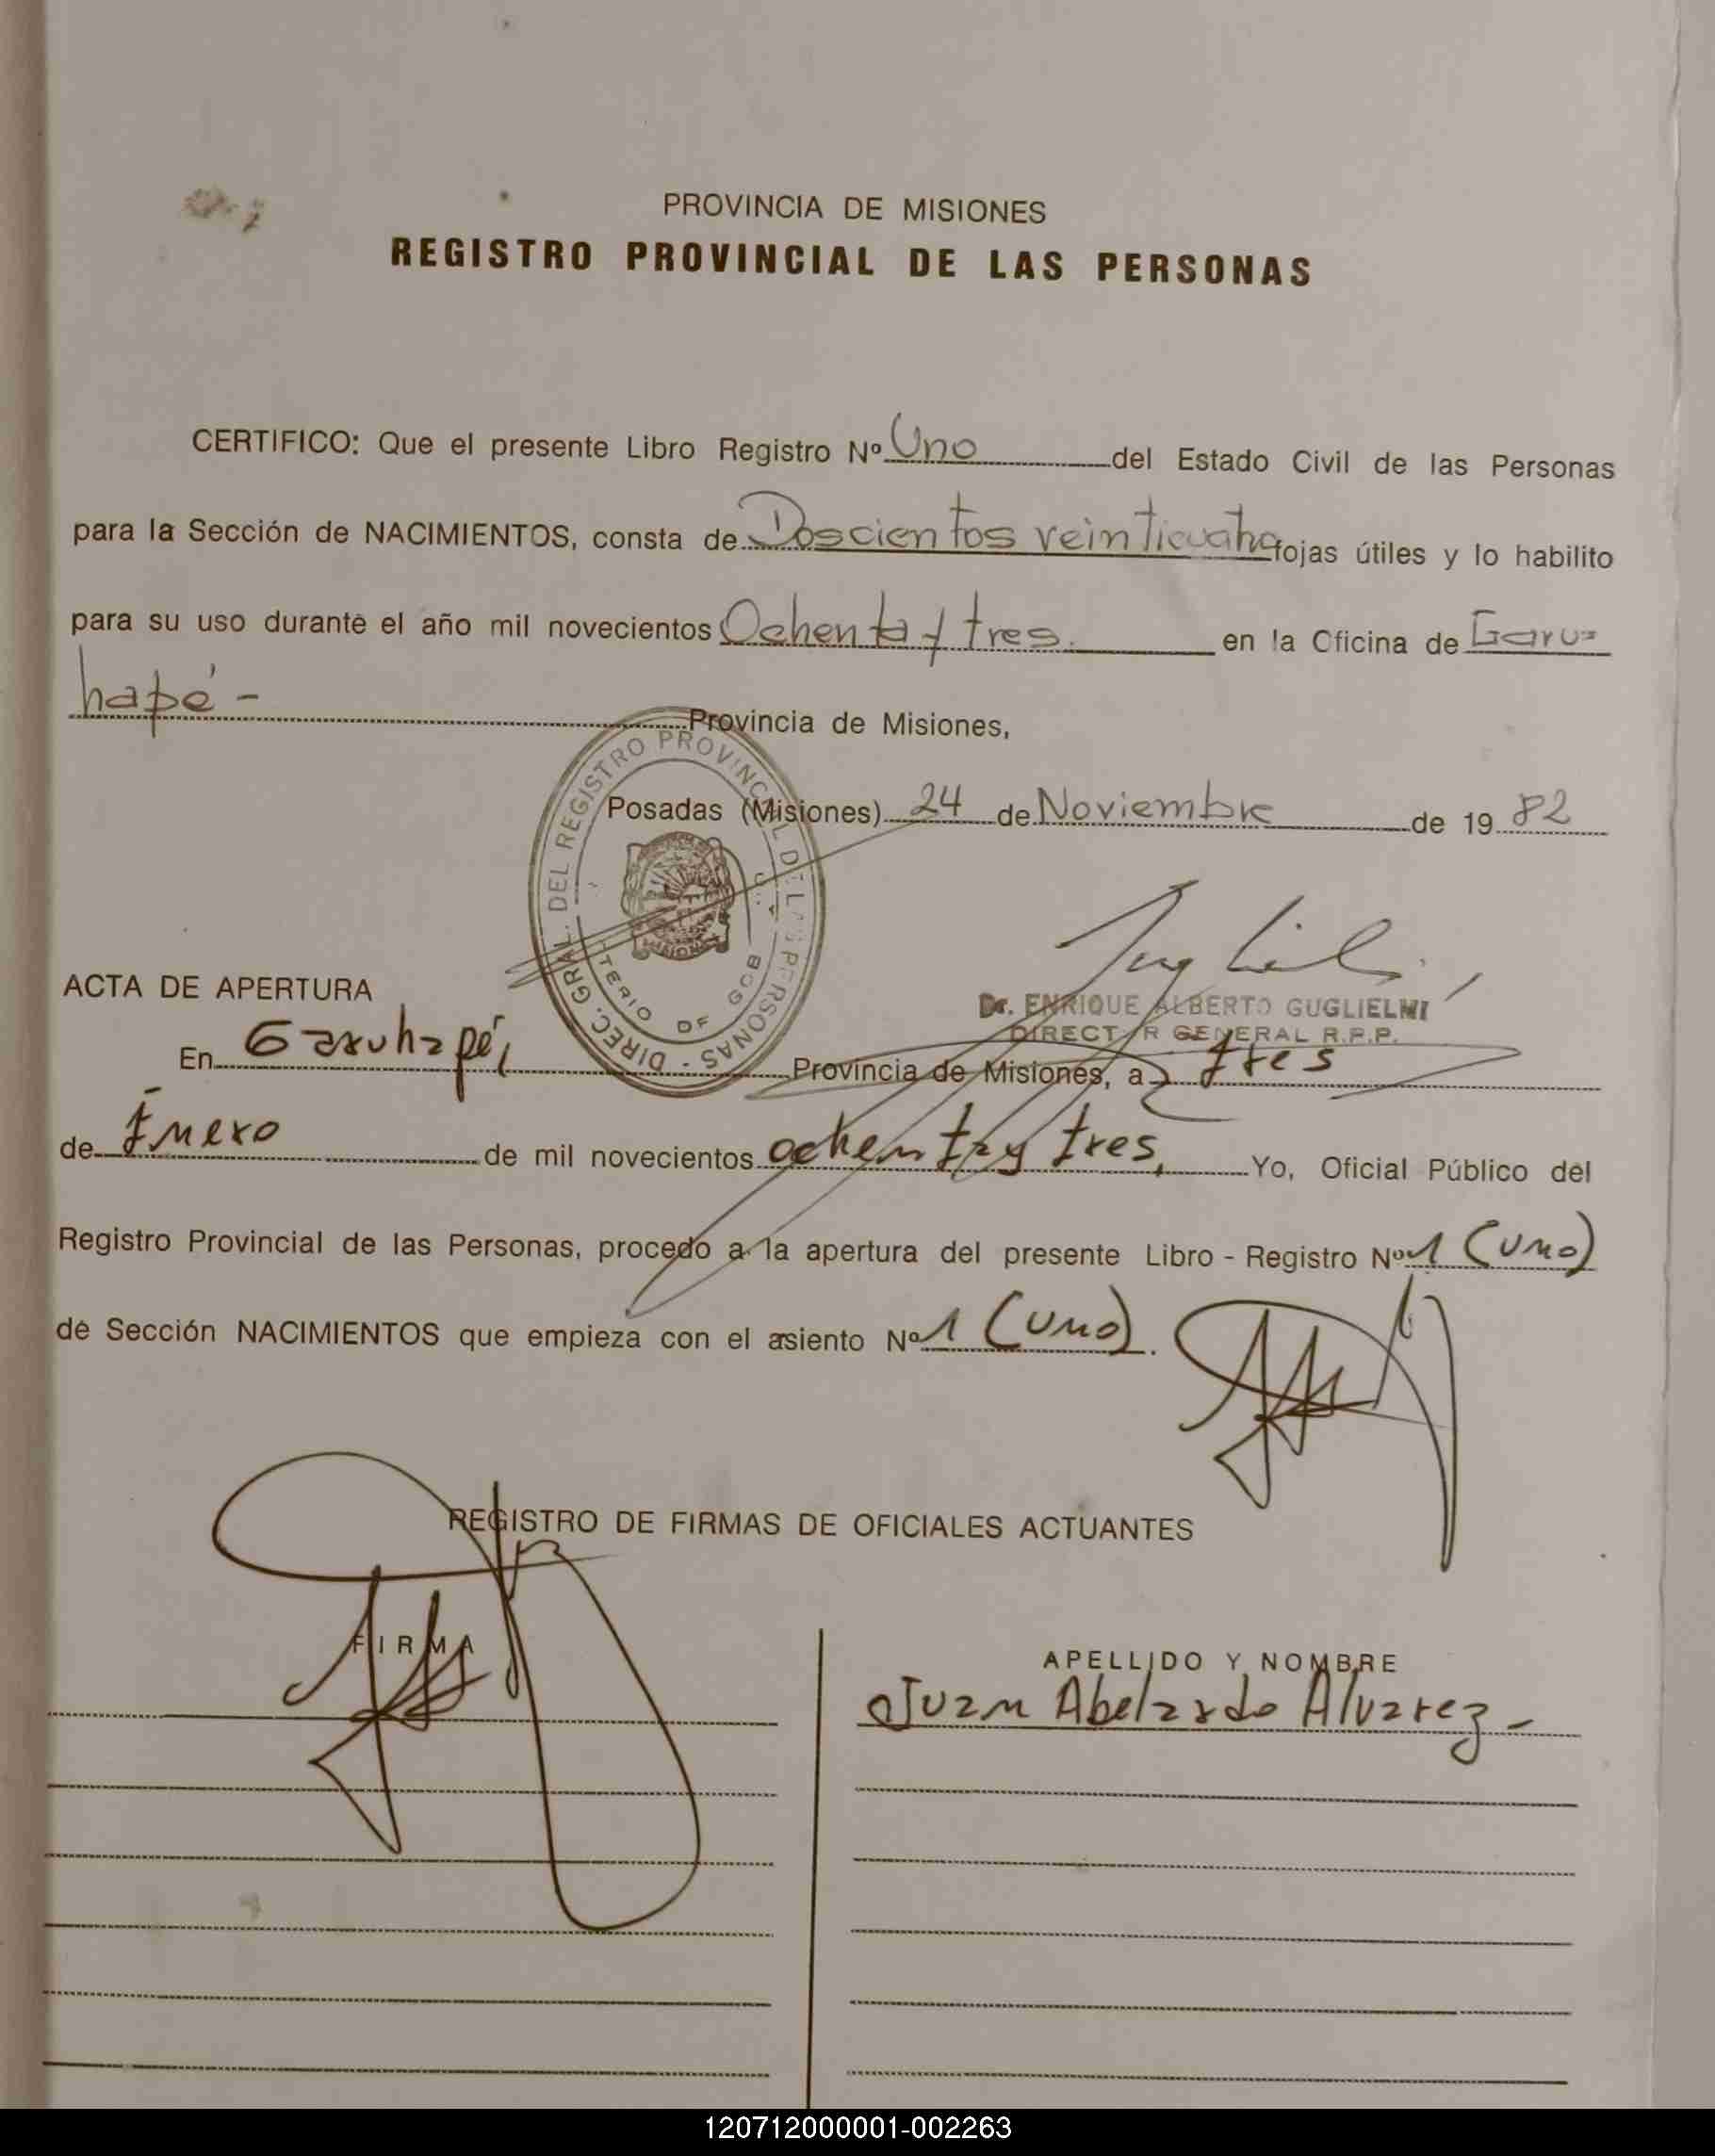 PROVINCIA DE MISIONES
REGISTRO PROVINCIAL DE LAS PERSONAS
CERTIFICO: Que el presente Libro Registro Nº Uno del Estado Civil de las Personas
para la Sección de NACIMIENTOS, consta de Doscientos veinticuatro fojas útiles y lo habilito
para su uso durante el año mil novecientos Ochenta y tres. en la Oficina de Garu=
hapé - Provincia de Misiones,
Posadas (Misiones) 24 de Noviembre de 19 82
DIREC. GRAL. DEL REGISTRO PROVINCIAL DE LAS PERSONAS -
TERIO DE GOB
MISIONES
Dr. ENRIQUE ALBERTO GUGLIELMI
DIRECTOR GENERAL R.P.P.
ACTA DE APERTURA
En Garuhapé, Provincia de Misiones, a tres
de Enero de mil novecientos ochenta y tres, Yo, Oficial Público del
Registro Provincial de las Personas, procedo a la apertura del presente Libro - Registro Nº 1 (uno)
de Sección NACIMIENTOS que empieza con el asiento Nº 1 (uno).
REGISTRO DE FIRMAS DE OFICIALES ACTUANTES
FIRMA
APELLIDO Y NOMBRE
Juan Abelardo Alvarez -
120712000001-002263